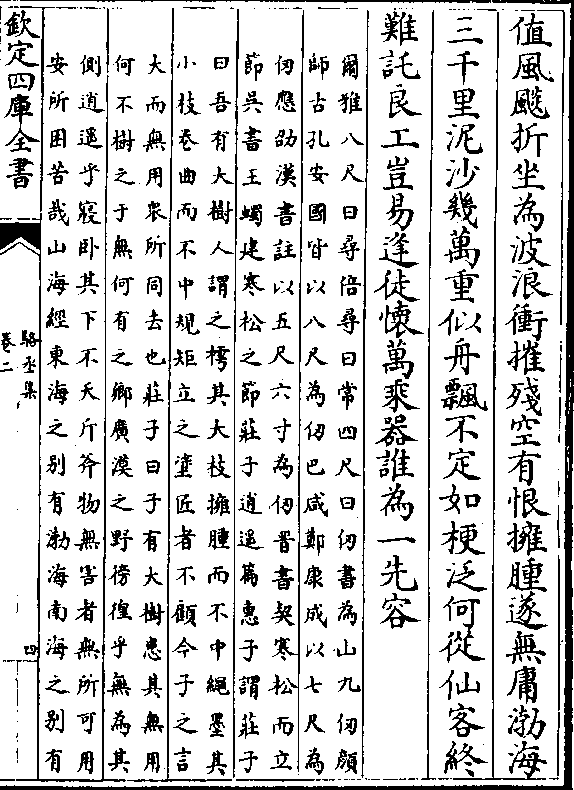 值風飈折坐為波浪衝摧殘空有恨擁腫遂無庸渤海
三千里泥沙幾萬重似舟飄不定如梗泛何從仙客終
難託良工豈易逢徒懷萬乘器誰為一先容
爾雅八尺曰尋倍尋曰常四尺曰仞書為山九仞顔
師古孔安國皆以八尺為仞巴咸鄭康成以七尺為
仞應劭漢書註以五尺六寸為仞晉書契寒松而立
莭吳書王蠋建寒松之莭莊子逍遥篇惠子謂莊子
曰吾有大樹人謂之樗其大枝擁腫而不中繩墨其
小枝卷曲而不中規矩立之塗匠者不顧今子之言
大而無用衆所同去也莊子曰子有大樹患其無用
何不樹之于無何有之鄉廣漠之野徬徨乎無為其
側逍遥乎寢卧其下不夭斤斧物無害者無所可用
安所困苦哉山海經東海之别有渤海南海之别有
欽定四庫全書
駱丞集
卷二
四